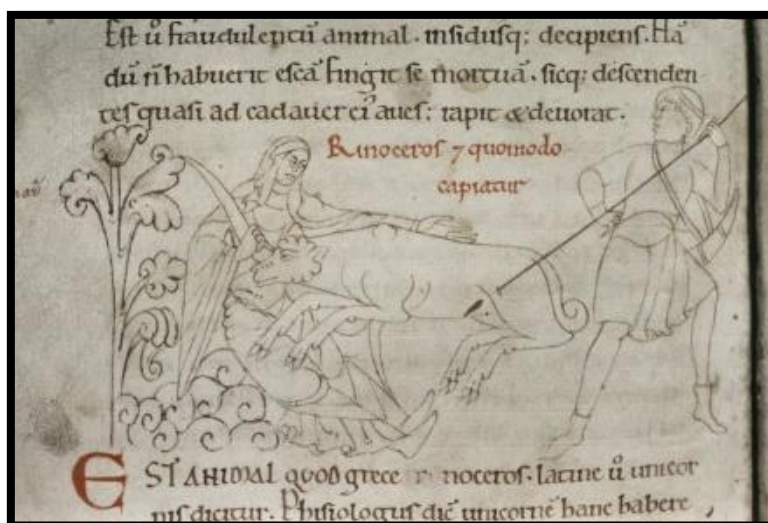 Est ů fraudulentū animal. insidusq; decipiens. Hā
dū ñ habuerit escā fingit se mortuā. sicq; descenden
tes quasi ad cadauer ei᾽ aues: rapit & deuorat.
Rinoceros ⁊ quomodo
capiatur
EST ANIMAL QUOD grece rinoceros. latine ů unicor
nis dicitur. Phisiologus diĉ unicornē hanc habere